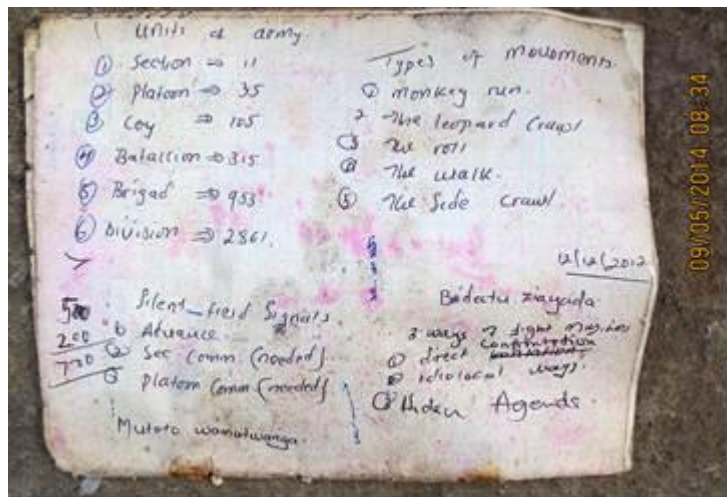 Units of army.
① Section ⇒ 11
② Platoon ⇒ 35
③ Coy ⇒ 105
④ Batallion ⇒ 315
⑤ Brigad ⇒ 953
⑥ Division ⇒ 2861.
Types of movoments.
① monkey run.
2 The leopard Crawl
③ The roll
④ The walk.
⑤ The Side Crawl.
12/12/2012
500
200
700
Silent field Signals
① Advance
② Sec Comm (needed)
③ Platom Comm (needed)
Mutoto
Bidcatu ziayada
3 ways of fight
① direct Confrontation
② ways.
③ Hiden Agends.
09/05/2014 08:34